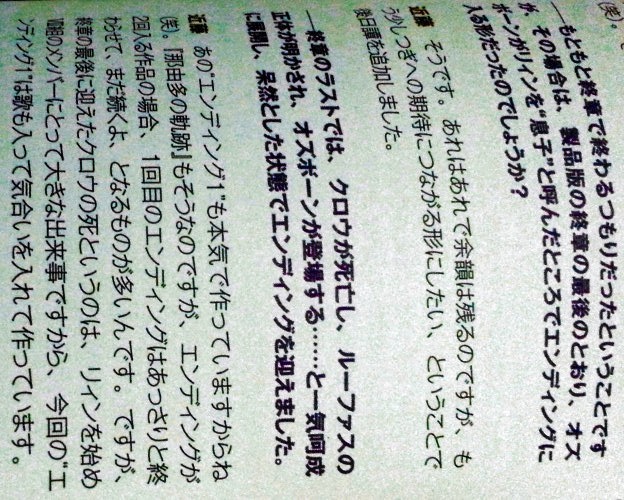 (笑)。
——もともと終章で終わるつもりだったということです
が、その場合は、製品版の終章の最後のとおり、オズ
ボーンがリィンを“息子”と呼んだところでエンディングに
入る形だったのでしょうか？
近藤　そうです。あれはあれで余韻は残るのですが、も
う少しつぎへの期待につながる形にしたい、ということで
後日譚を追加しました。
——終章のラストでは、クロウが死亡し、ルーファスの
正体が明かされ、オズボーンが登場する……と一気呵成
に展開し、呆然とした状態でエンディングを迎えました。
近藤　あの“エンディング1”も本気で作っていますからね
(笑)。『那由多の軌跡』もそうなのですが、エンディングが
2回入る作品の場合、1回目のエンディングはあっさりと終
わらせて、まだ続くよ、となるものが多いんです。ですが、
終章の最後に迎えたクロウの死というのは、リィンを始め
Ⅶ組のメンバーにとって大きな出来事ですから、今回の“エ
ンディング1”は歌も入って気合いを入れて作っています。